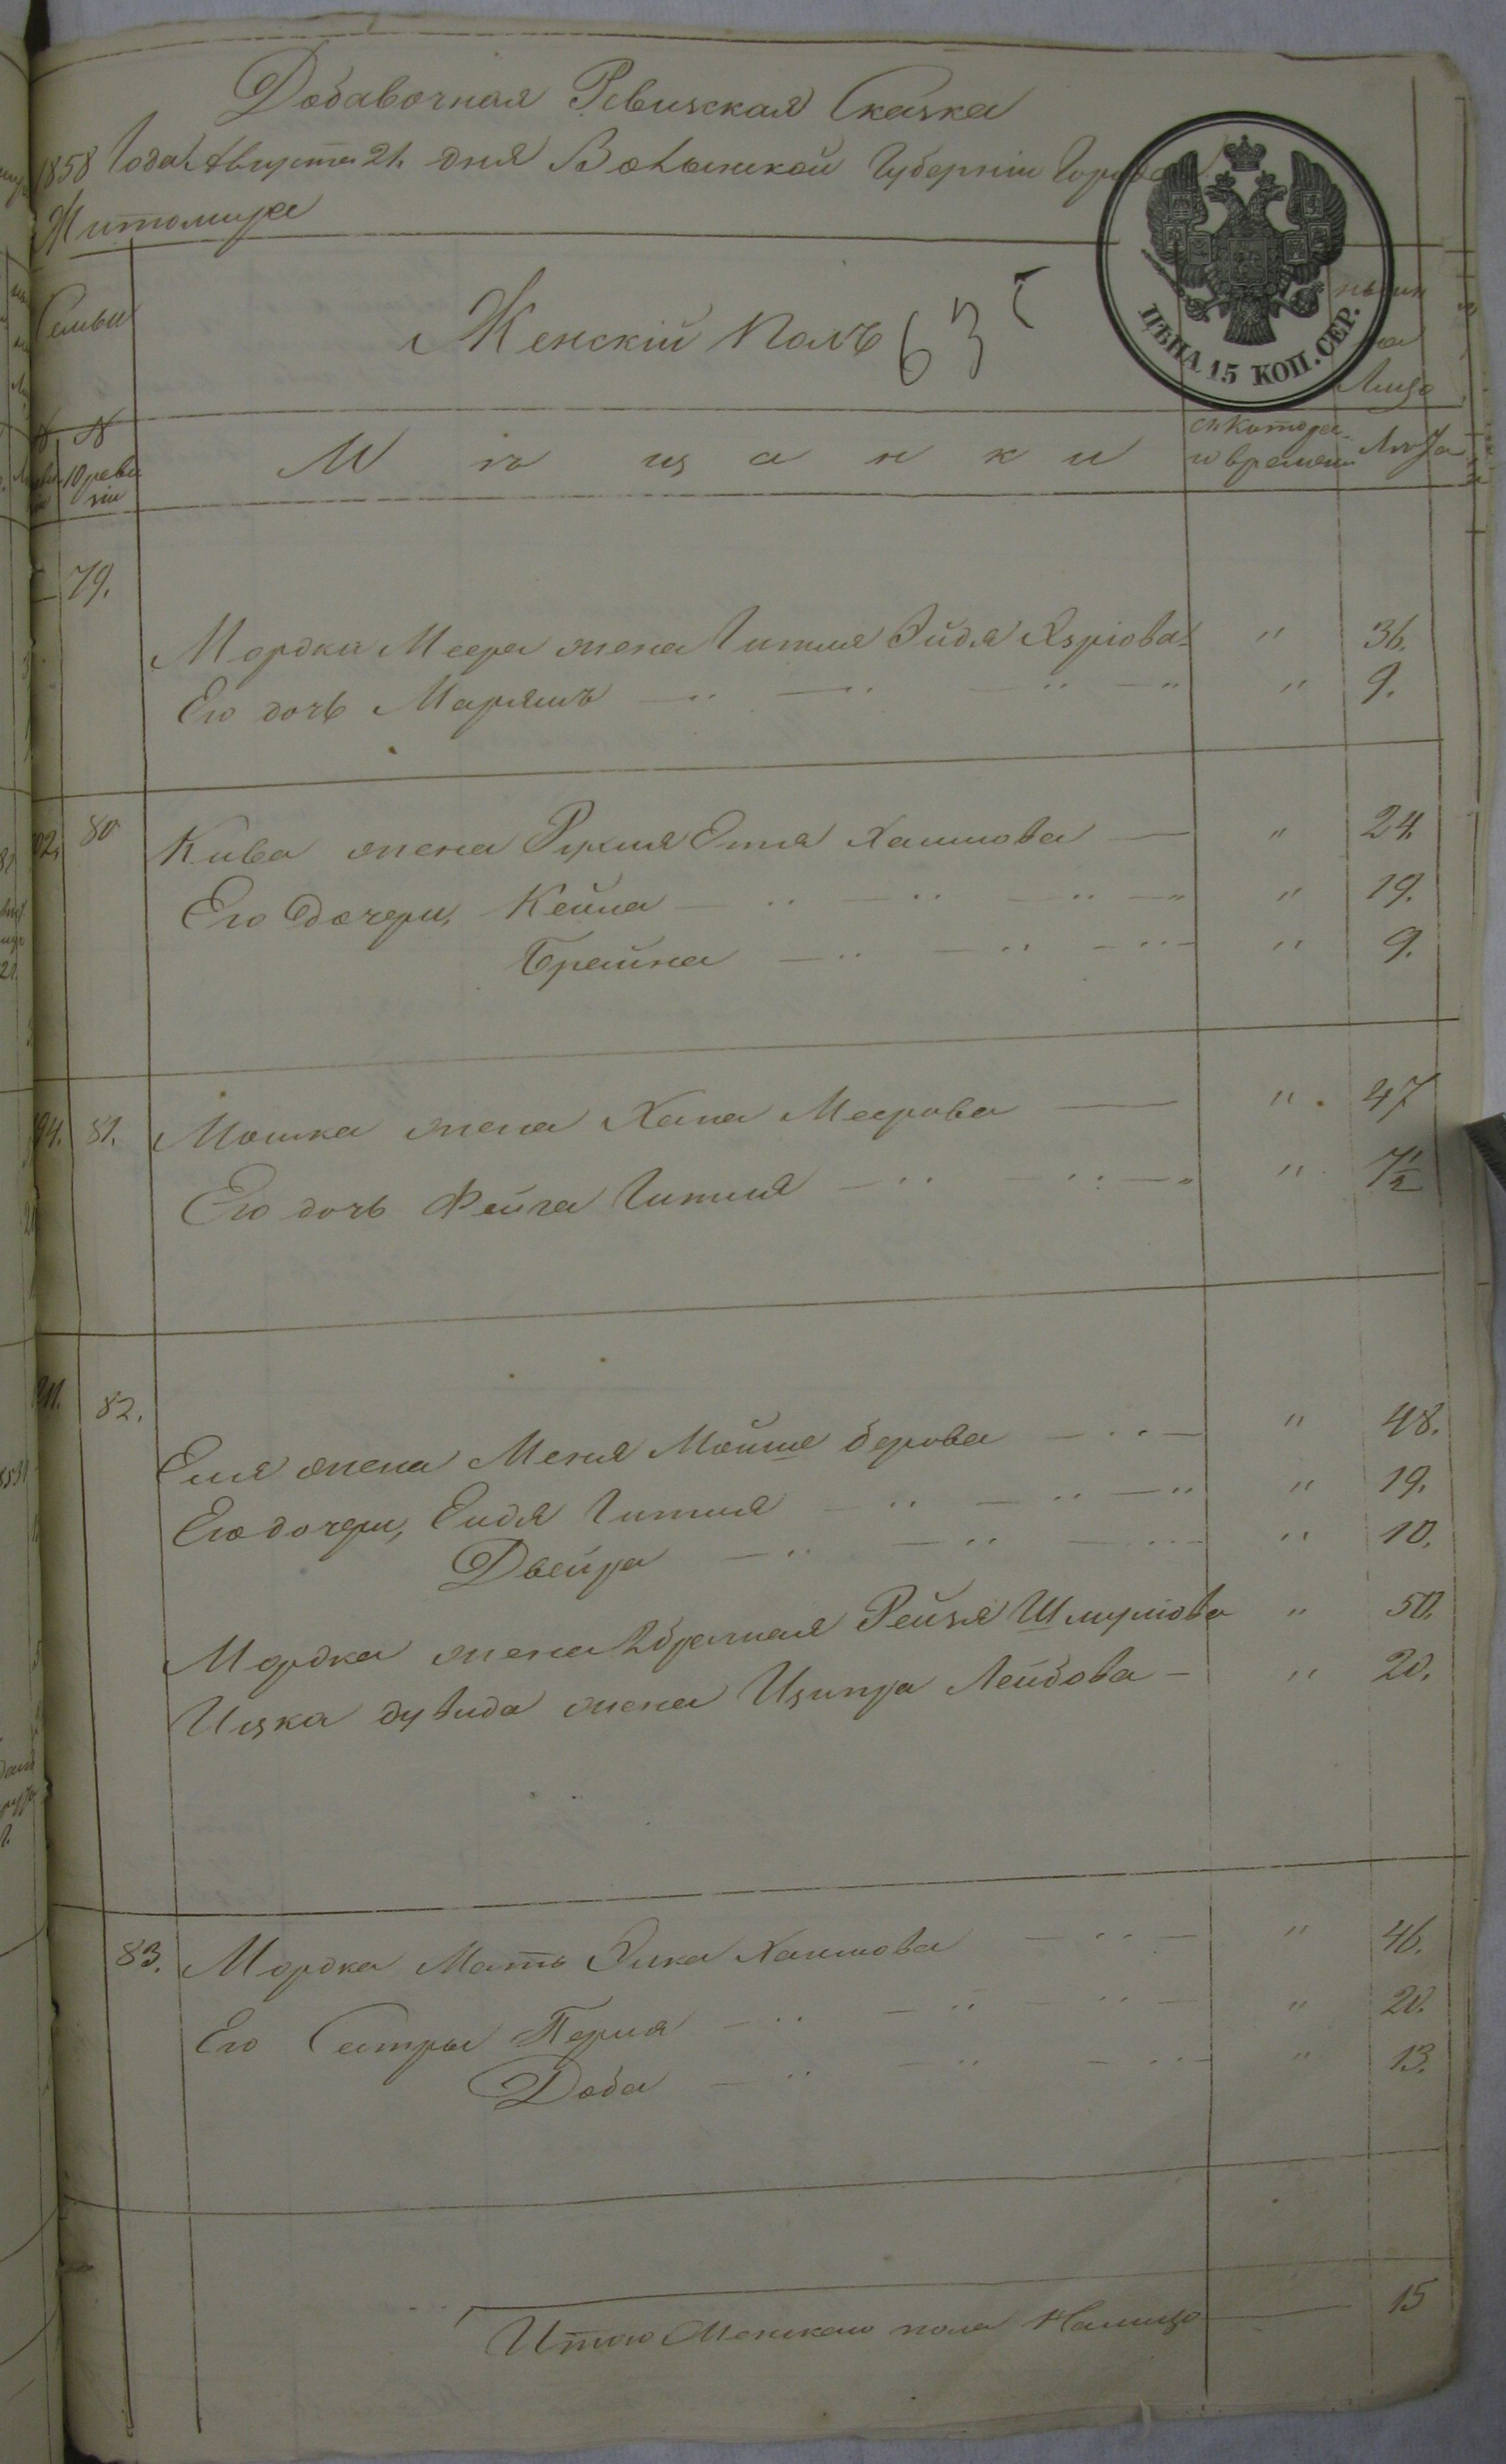 Добавочная Ревизская Сказка
1858 Года Августа 21. дня Волынской Губернии Города
Житомира
Семьи
Женскій полъ
635
ЦѢНА 15 КОП. СЕР.
Лицо
№ №
10 реви
зіи
Мѣщанки
съ Котора
го времени
Лѣта
79.
Мордка Меера жена Гитля Эйдля Азріова " 36.
Его дочь Марьямъ " 9.
80
Кива жена Рухля Етля Хаимова " 24.
Его Дочери, Кейла " 19.
Брайна " 9.
81. Мошка жена Хана Меерова " 47
Его дочь Фейга Гитля " 7 1/2
82.
Еля жена Меня Мойше берова " 48.
Его дочери, Гитля " 19.
Двейра " 10.
Мордка жена Рейзя Шмулiова " 50.
Ицка дувида жена Ципра Лейбова " 20.
83. Мордка Мать Элка Хаимова " 46.
Его Сестры Перля " 20.
Доба " 13.
Итого Женскаго пола Налицо 15